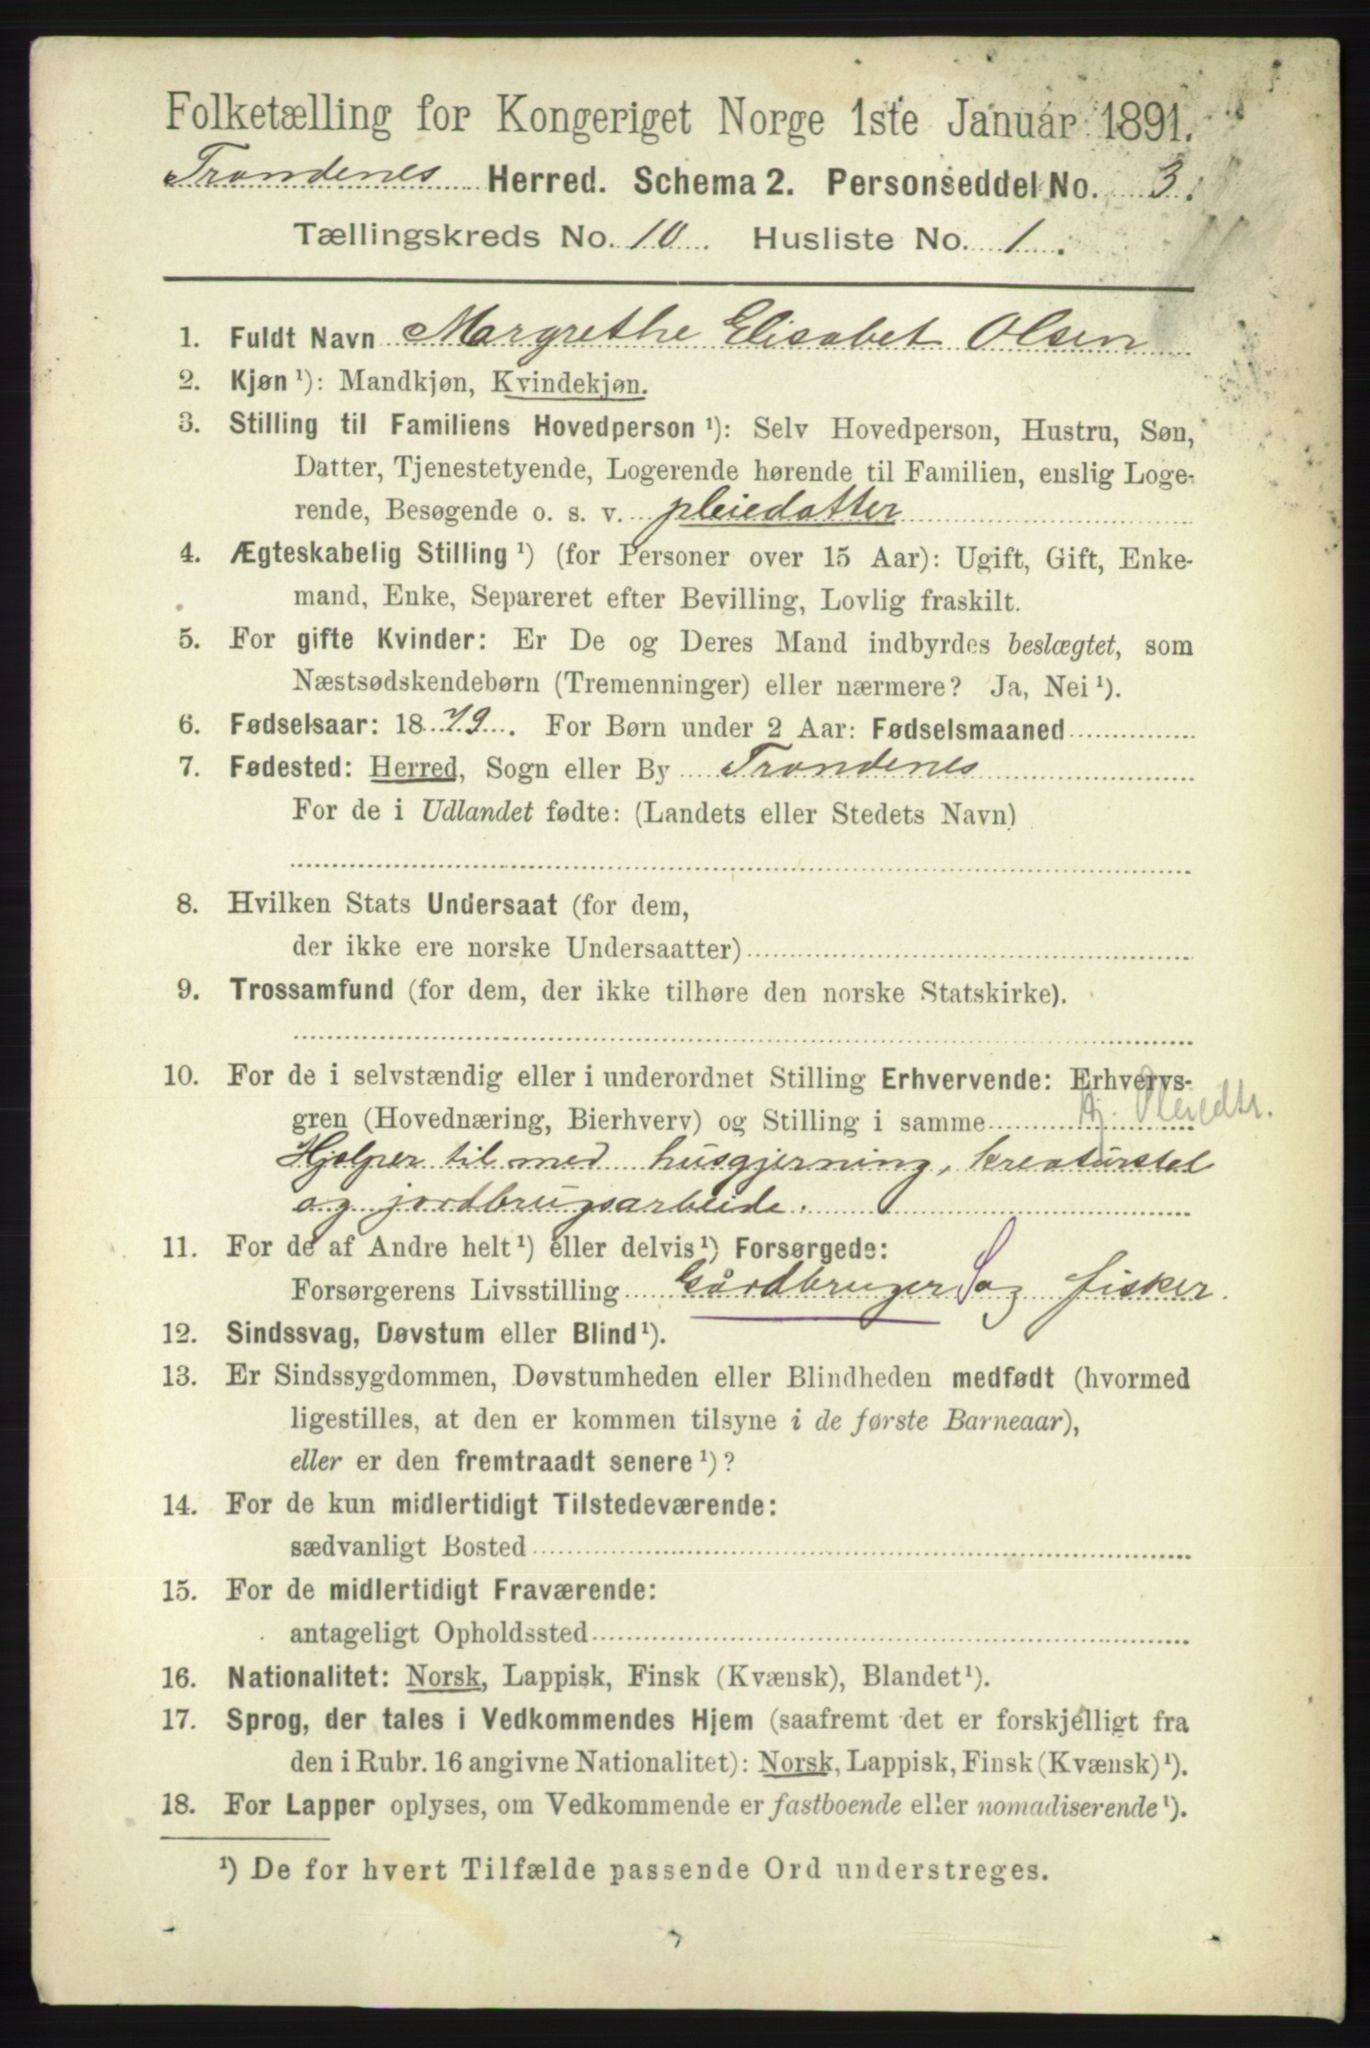 Folketælling for Kongeriget Norge 1ste Januar 1891.
Trondenes Herred. Schema 2. Personseddel No. 3.
Tællingskreds No. 10. Husliste No. 1.
1. Fuldt Navn Margrethe Elisabet Olsen
2. Kjøn ¹): Mandkjøn, Kvindekjøn.
3. Stilling til Familiens Hovedperson ¹): Selv Hovedperson, Hustru, Søn,
Datter, Tjenestetyende, Logerende hørende til Familien, enslig Loge-
rende, Besøgende o. s. v. pleiedatter
4. Ægteskabelig Stilling ¹) (for Personer over 15 Aar): Ugift, Gift, Enke-
mand, Enke, Separeret efter Bevilling, Lovlig fraskilt.
5. For gifte Kvinder: Er De og Deres Mand indbyrdes beslægtet, som
Næstsødskendebørn (Tremenninger) eller nærmere? Ja, Nei ¹).
6. Fødselsaar: 1879. For Børn under 2 Aar: Fødselsmaaned
7. Fødested: Herred, Sogn eller By Trondenes
For de i Udlandet fødte: (Landets eller Stedets Navn)
8. Hvilken Stats Undersaat (for dem,
der ikke ere norske Undersaatter)
9. Trossamfund (for dem, der ikke tilhøre den norske Statskirke).
10. For de i selvstændig eller i underordnet Stilling Erhvervende: Erhvervs-
gren (Hovednæring, Bierhverv) og Stilling i samme Pleiedtr.
Hjælper til med husgjerning, kreaturstel
og jordbrugsarbeide.
11. For de af Andre helt ¹) eller delvis ¹) Forsørgede:
Forsørgerens Livsstilling Gårdbruger S og fisker.
12. Sindssvag, Døvstum eller Blind ¹).
13. Er Sindssygdommen, Døvstumheden eller Blindheden medfødt (hvormed
ligestilles, at den er kommen tilsyne i de første Barneaar),
eller er den fremtraadt senere ¹)?
14. For de kun midlertidigt Tilstedeværende:
sædvanligt Bosted
15. For de midlertidigt Fraværende:
antageligt Opholdssted
16. Nationalitet: Norsk, Lappisk, Finsk (Kvænsk), Blandet ¹).
17. Sprog, der tales i Vedkommendes Hjem (saafremt det er forskjelligt fra
den i Rubr. 16 angivne Nationalitet): Norsk, Lappisk, Finsk (Kvænsk) ¹).
18. For Lapper oplyses, om Vedkommende er fastboende eller nomadiserende ¹).
¹) De for hvert Tilfælde passende Ord understreges.